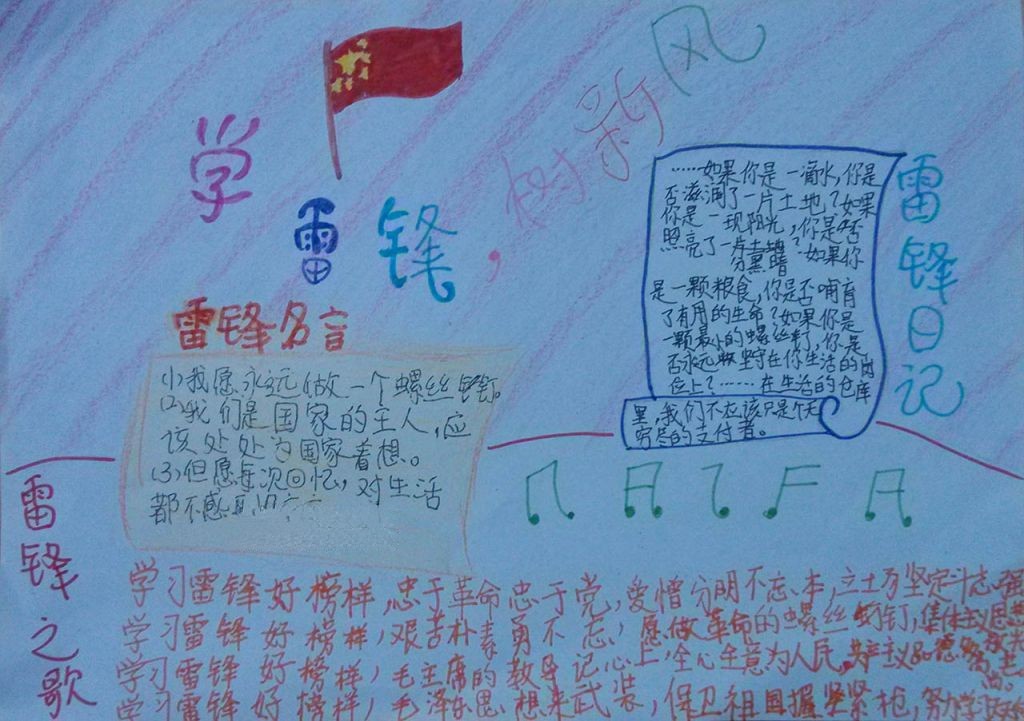 学
雷锋,
树新风
雷锋名言
(1)我愿永远做一个螺丝钉。
(2)我们是国家的主人,应
该处处为国家着想。
(3)但愿每次回忆,对生活
都不感
雷锋日记
……如果你是一滴水,你是
否滋润了一片土地?如果
你是一现阳光,你是否
照亮了一片
分黑暗?如果你
是一颗粮食,你是否哺育
了有用的生命?如果你是
一颗最小的螺丝钉,你是
否永远坚守在你生活的岗
位上?……在生活的仓库
里,我们不应该只是个无
穷尽的支付者。
雷锋之歌
学习雷锋好榜样,忠于革命忠于党,爱憎分明不忘本,立土万坚定斗志强
学习雷锋好榜样,艰苦朴素勇不忘,愿做革命的螺丝钉,集体主义思想
学习雷锋好榜样,毛主席的教导记心上,全心生意为人民,共产主义品德
学习雷锋好榜样,毛泽东思想来武装,保卫祖国握紧枪,努力学习